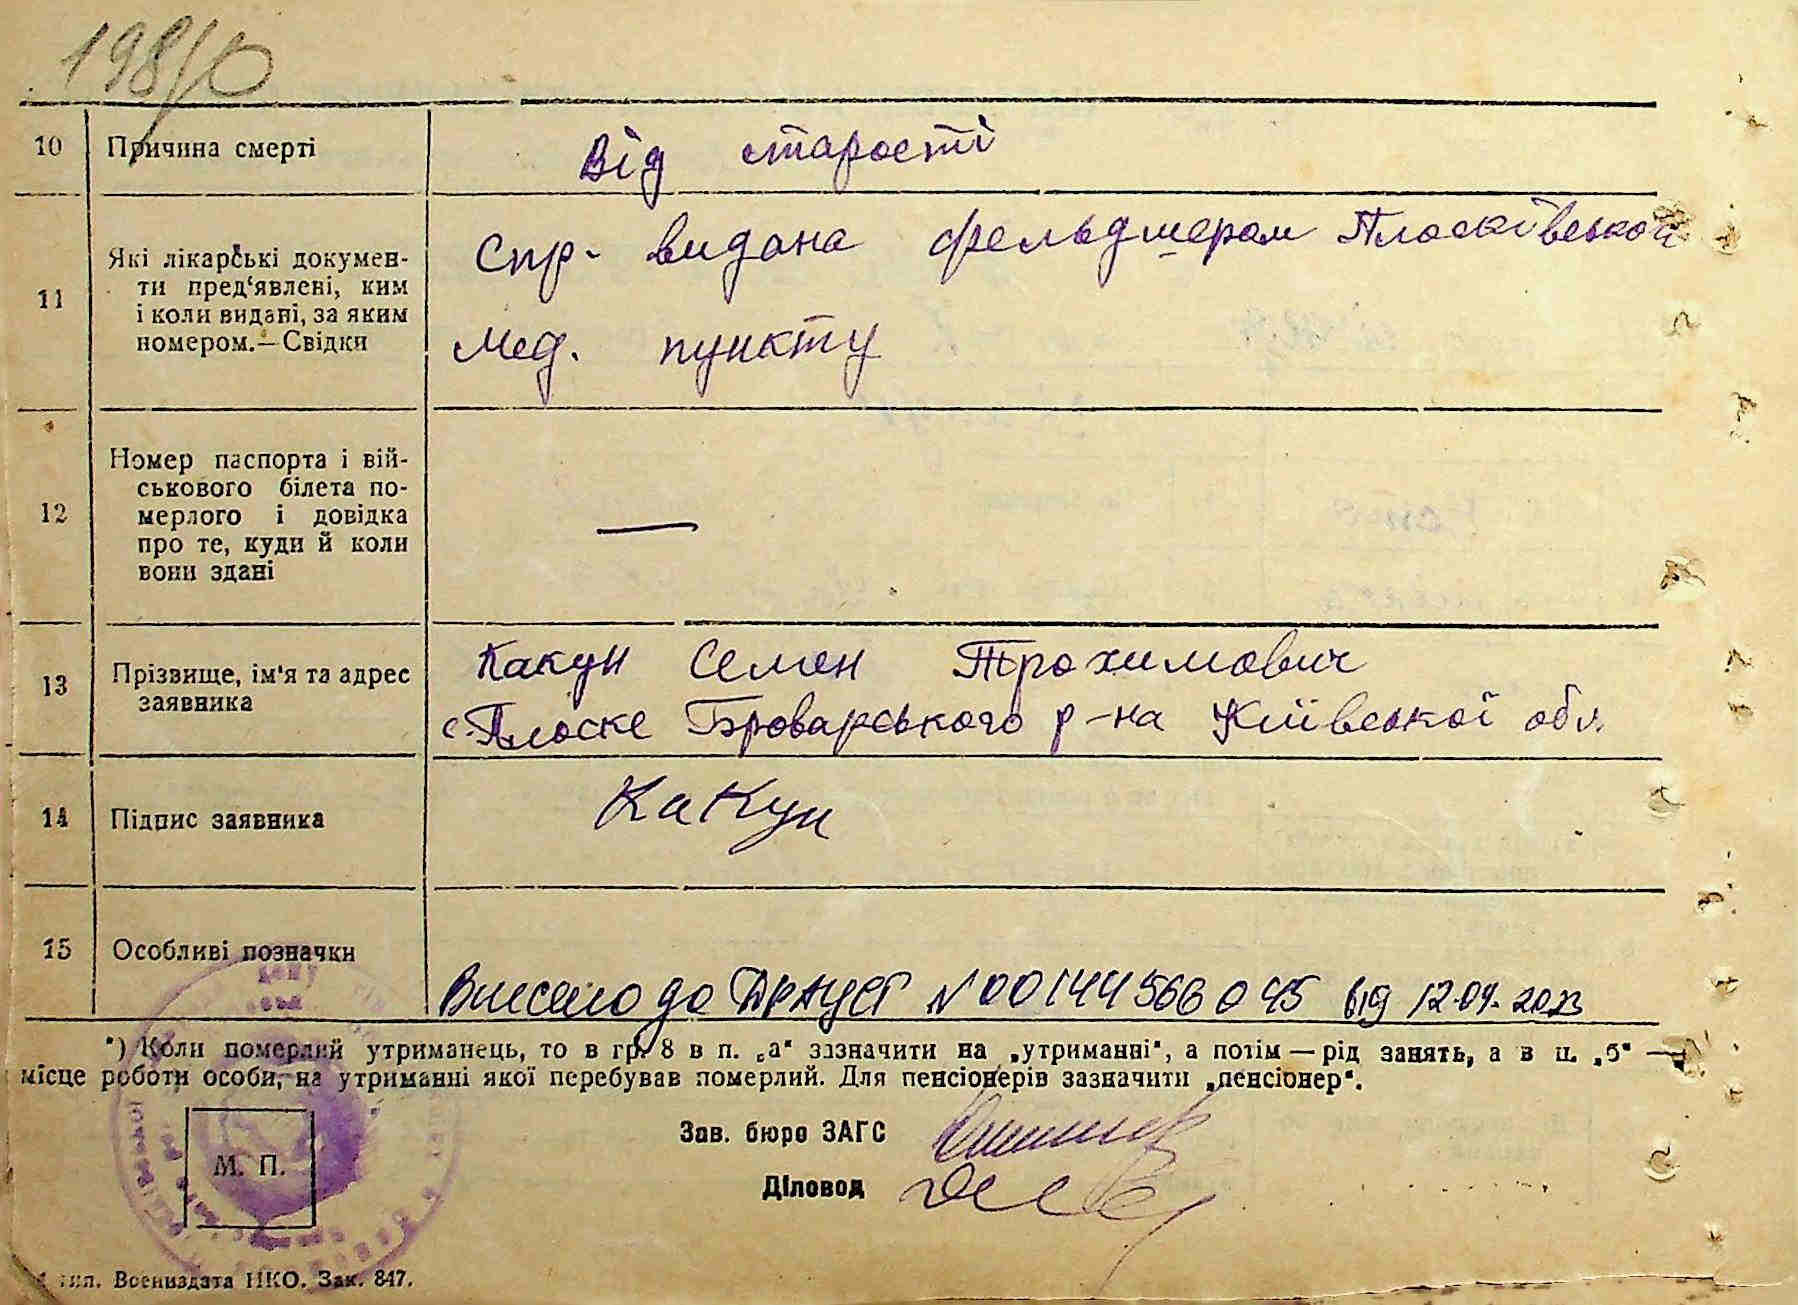 198/0
10 Причина смерті Від старості
11 Які лікарські докумен-
ти пред'явлені, ким
і коли видані, за яким
номером.—Свідки
Спр. видана фельдшером Плосківського
Мед. пункту
12 Номер паспорта і вій-
ськового білета по-
мерлого і довідка
про те, куди й коли
вони здані
—
13 Прізвище, ім'я та адрес
заявника
Какун Семен Трохимович
с. Плоске Броварського р-на Київської обл.
14 Підпис заявника Какун
15 Особливі позначки
Внесено до ДРАЦСГ N 00144566045 від 12.04.2023
*) Коли померлий утриманець, то в гр. 8 в п. „а" зазначити на „утриманні", а потім — рід занять, а в п. „б" —
місце роботи особи, на утриманні якої перебував померлий. Для пенсіонерів зазначити „пенсіонер".
Зав. бюро ЗАГС
М. П.
Діловод
тип. Воениздата НКО. Зак. 847.